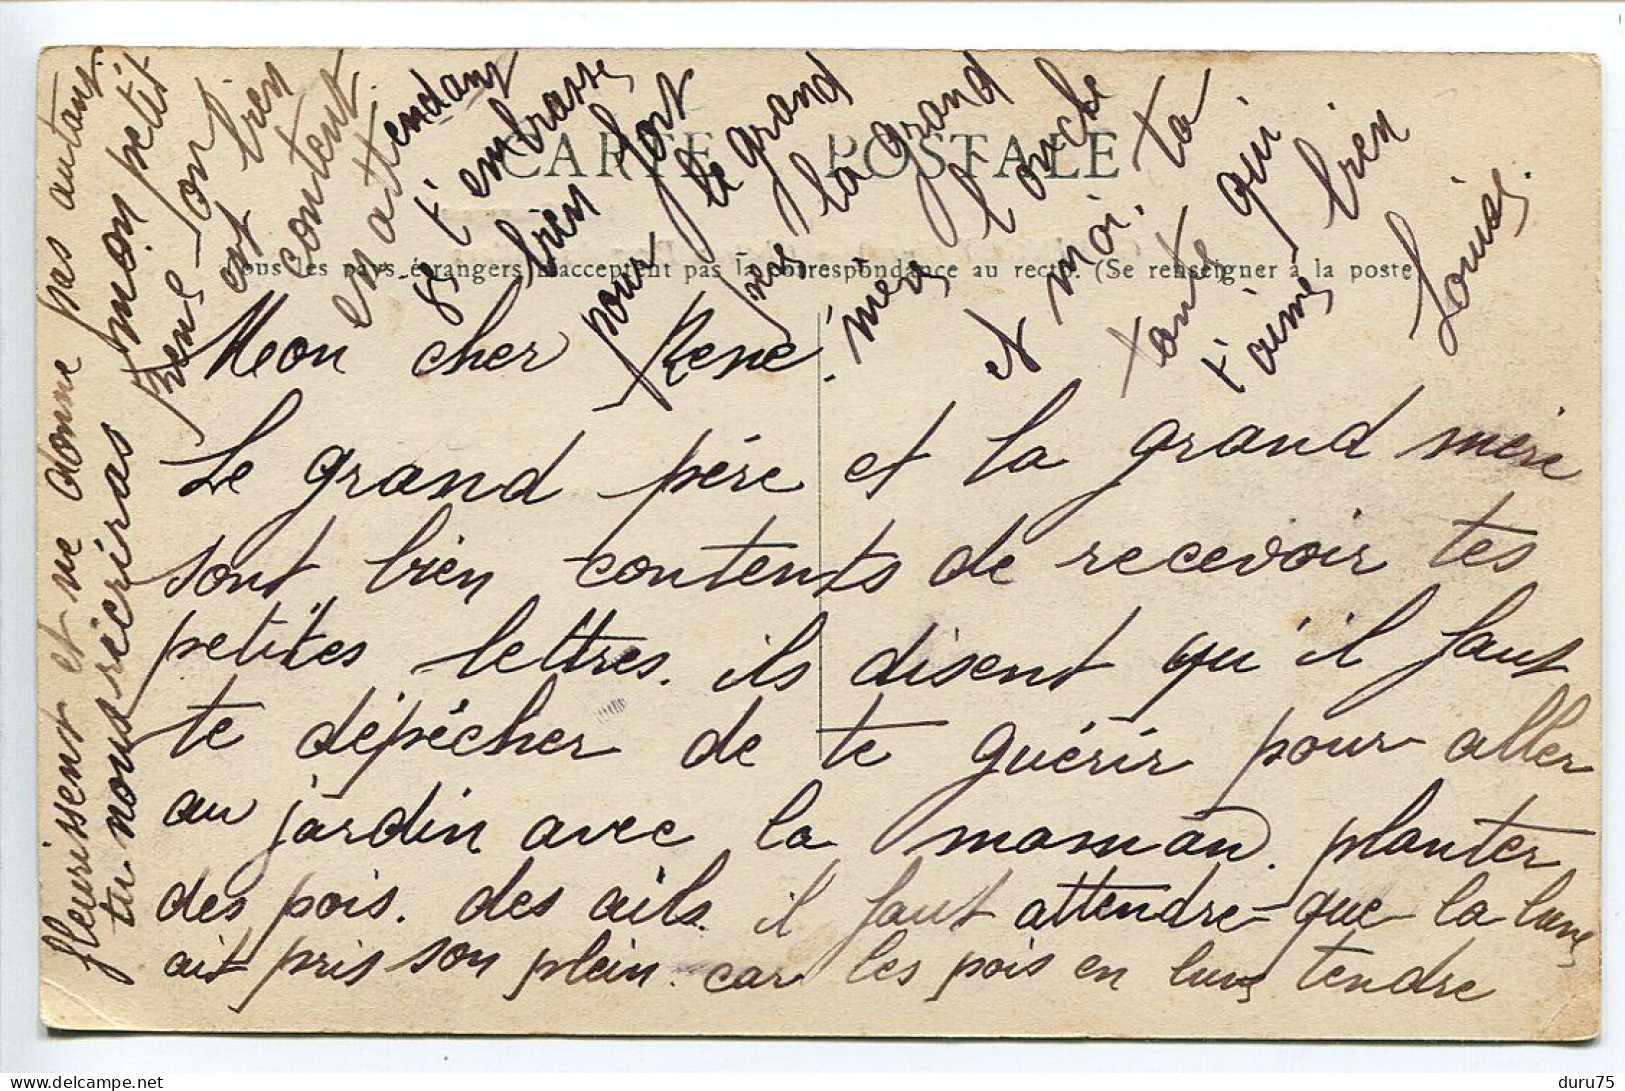 CARTE POSTALE
Tous les pays étrangers n'acceptent pas la correspondance au recto. (Se renseigner à la poste
Mon cher René.
Le grand pére et la grand mére
sont bien contents de recevoir tes
petites lettres. ils disent qu'il faut
te dépêcher de te guérir pour aller
au jardin avec la maman. planter
des pois. des ails. il faut attendre que la lune
ait pris son plein. car les pois en lune tendre
fleurissent et ne donne pas autant.
tu nous récriras mon petit
René on
est bien
content.
en attendant
t'embrasse
bien fort
pour le grand
la grand
mére l'oncle
et moi. ta
tante qui
t'aime bien
Louise.
duru75